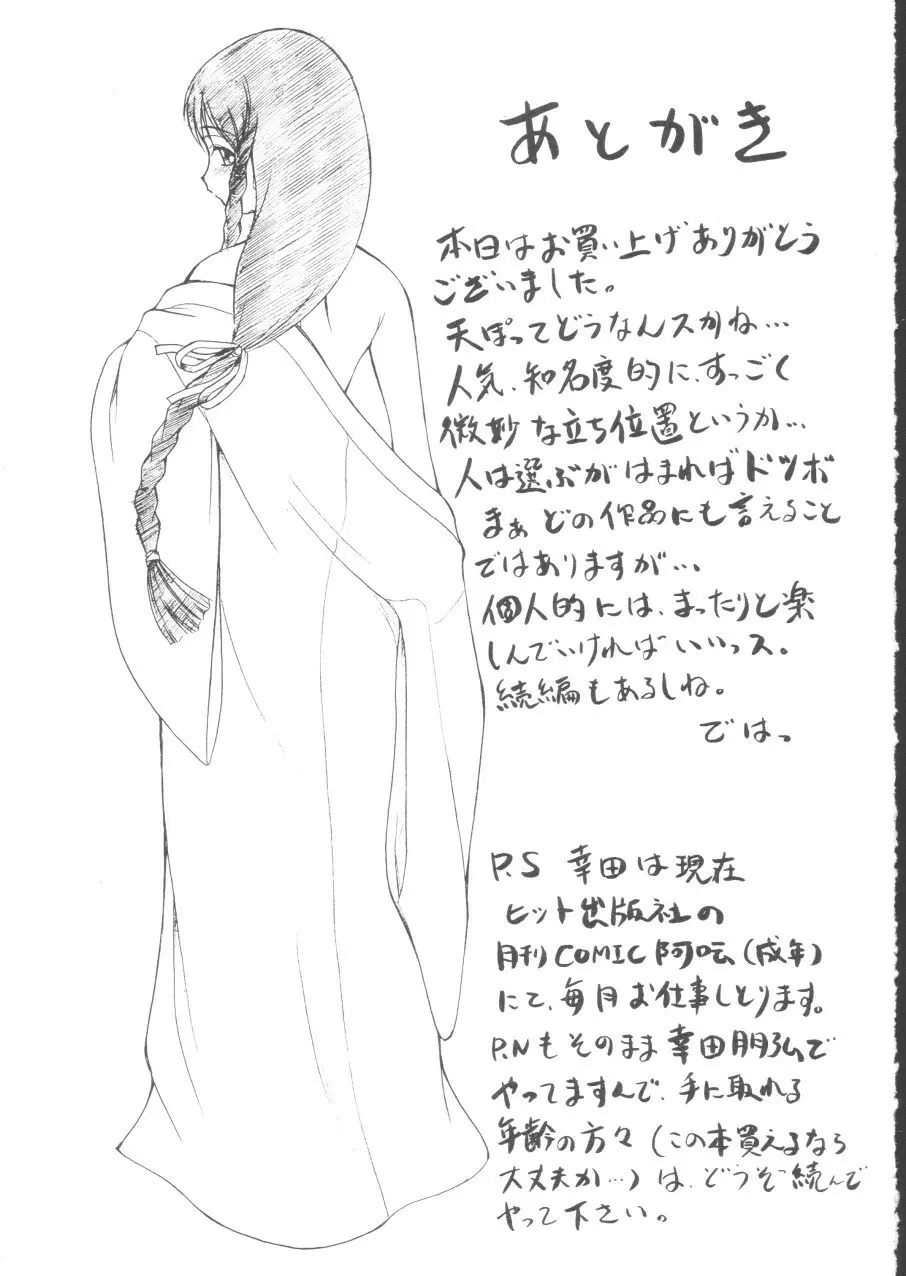 あとがき
本日はお買い上げありがとう
ございました。
天ぽってどうなんスかね…
人気、知名度的に、すっごく
微妙な立ち位置というか…
人は選ぶがはまればドツボ
まぁどの作品にも言えること
ではありますが…
個人的には、まったりと楽
しんでいければいいっス。
続編もあるしね。
ではっ
P.S 幸田は現在
ヒット出版社の
月刊COMIC阿吽(成年)
にて、毎月お仕事しとります。
P.Nもそのまま幸田朋弘で
やってますんで、手に取れる
年齢の方々(この本買えるなら
大丈夫か…)は、どうぞ続んで
やって下さい。